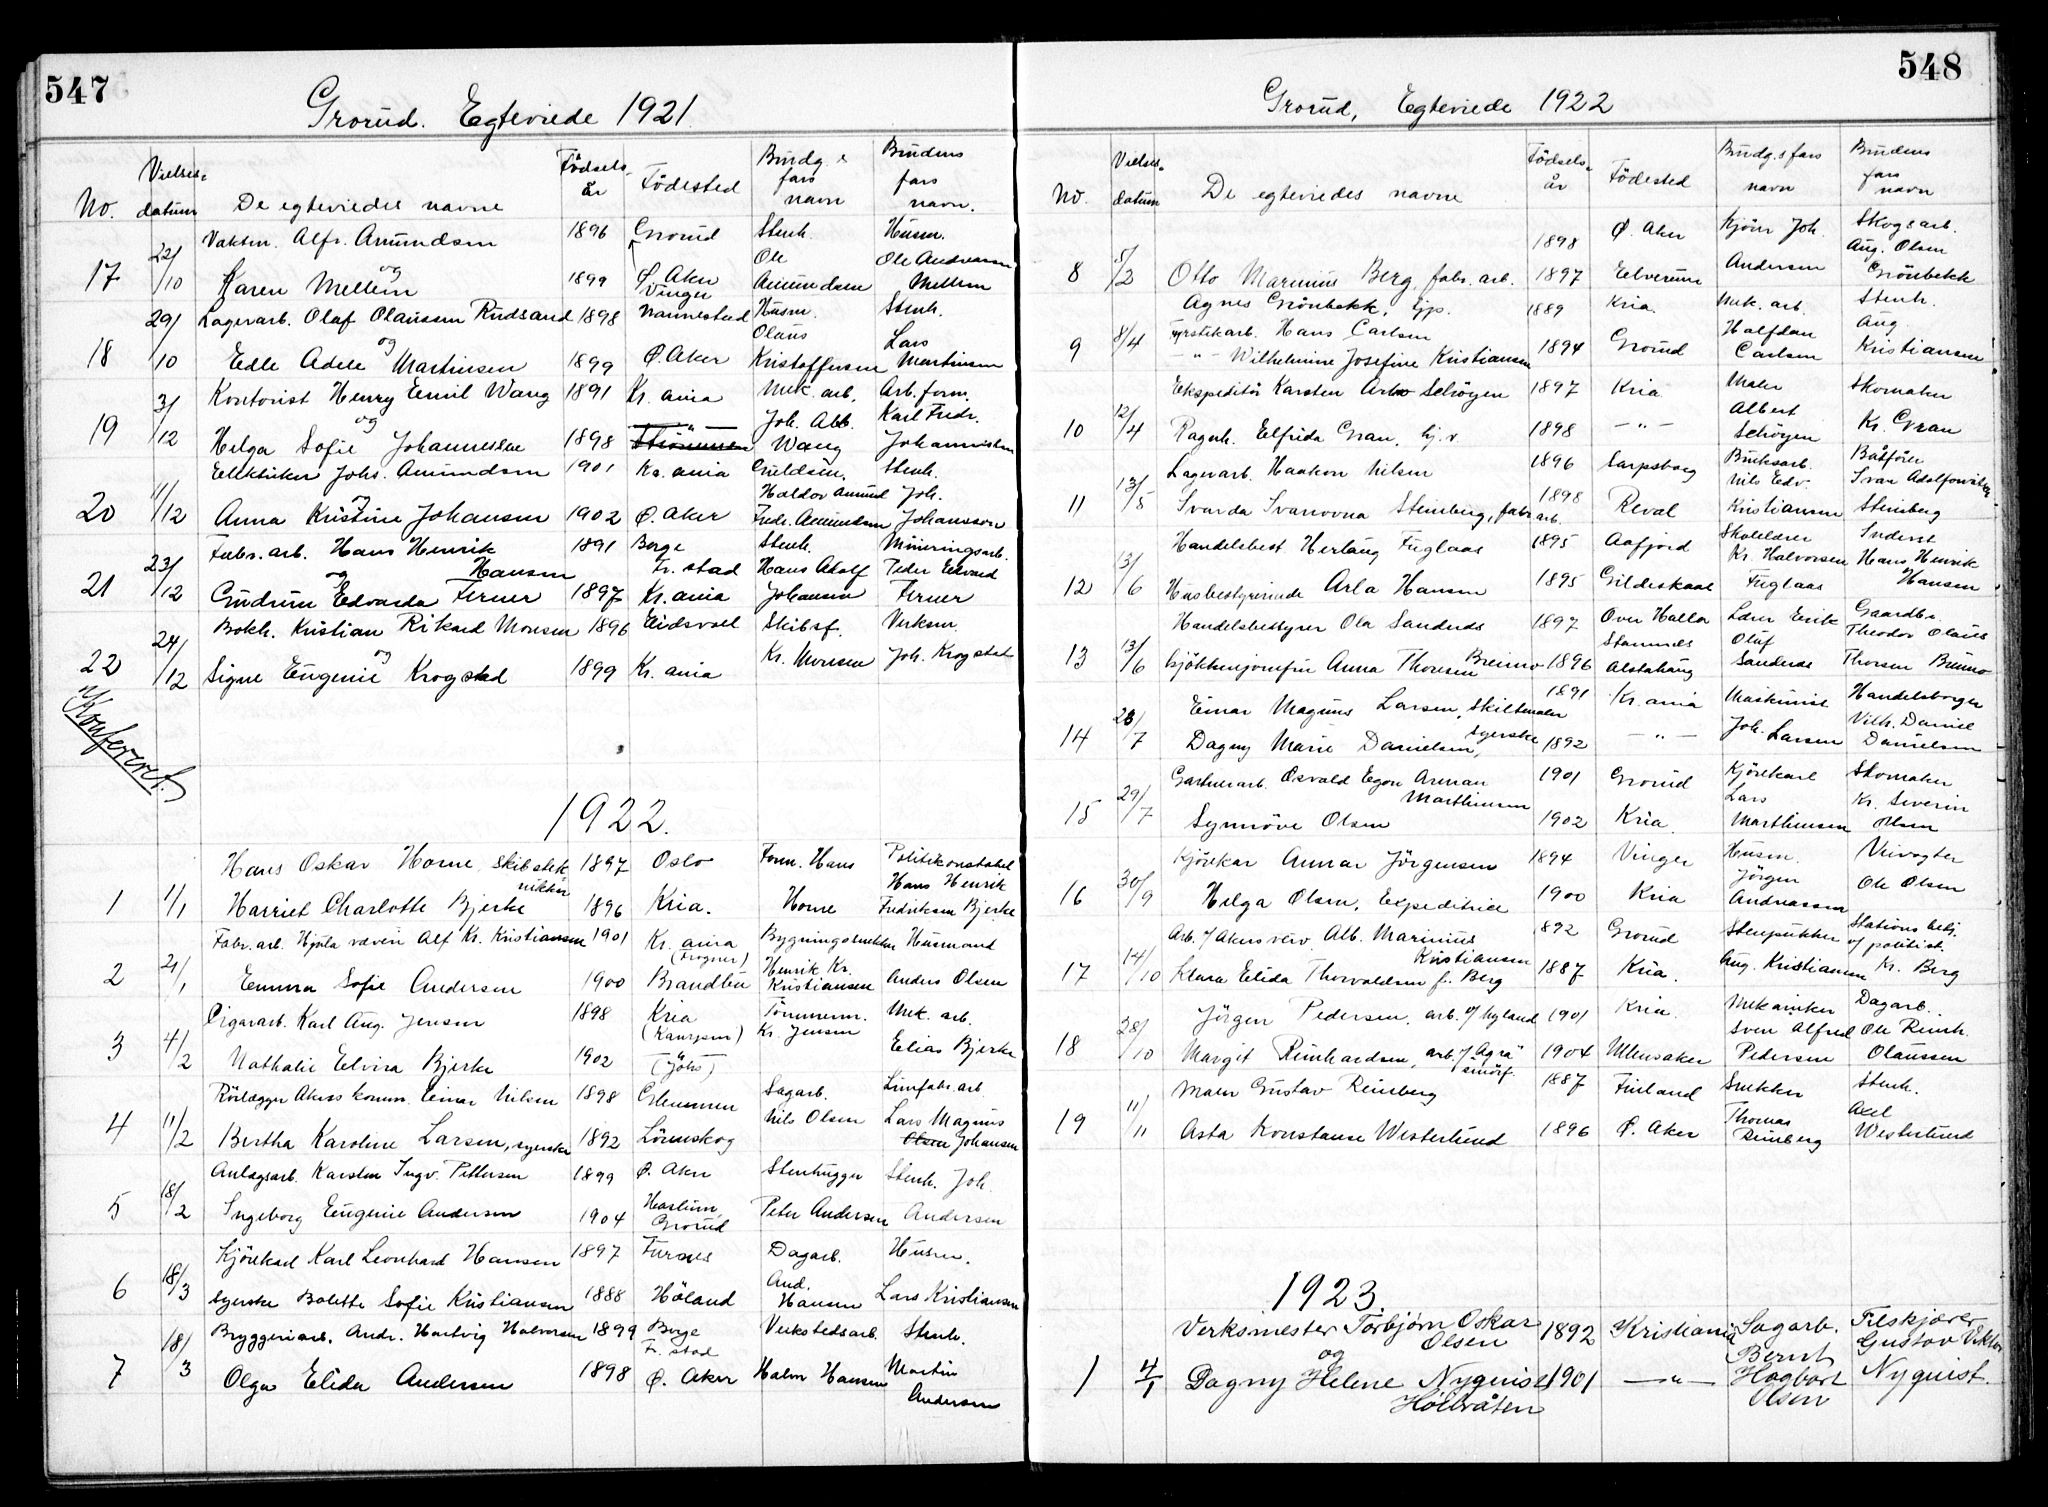 547
Grorud. Egteviede 1921.
No.
Vielses-datum
De egteviedes navne
Fødsels-år
Födested
Brudg.s fars navn
Brudens fars navn.
Vaktm. Alfr. Amundsen 1896 Grorud Stenh. Husm.
17 22/10 og Ö. Aker Ole Ole Andreassen
Karen Mellem 1899 Vinger Amundsen Mellem
Lagerarb. Olaf Olaussen Rudsand 1898 Nannestad Husm. Stenh.
18 29/10 og Olaus Lars
Edle Adele Martinsen 1899 Ø. Aker Kristoffersen Martinsen
Kontorist Henry Emil Wang 1891 Kr.ania Mek. arb. Arb. form.
19 3/12 og — " — Joh. Alb. Karl Fredr.
Helga Sofie Johannessen 1898 Strömmen Wang Johannessen
Elektriker Johs. Amundsen 1901 Kr.ania Guldsm. Stenh.
20 11/12 og Haldor Amund Joh.
Anna Kristine Johansen 1902 Ø. Aker Fredr. Amundsen Johansson
Fabr. arb. Hans Henrik Hansen 1891 Borge Fr.stad Stenh. Mineringsarb.
21 23/12 og Hans Adolf Peder Edvard
Gudrun Edvarda Ferner 1897 Kr.ania Johansen Ferner
Bokh. Kristian Rikard Monsen 1896 Eidsvoll Skibsf. Verksm.
22 24/12 og Kr. Monsen Joh. Krogstad
Signe Eugenie Krogstad 1899 Kr.ania
Konferert.
1922.
Hans Oskar Horne, skibstekniker 1897 Oslo Form. Hans Politikonstabel
1 1/1 Hans Henrik
Harriet Charlotte Bjerke 1896 Kria. Horne Fredriksen Bjerke
Fabr. arb. Hjula væveri Alf Kr. Kristiansen 1901 Kr.ania (Frogner) Bygningssnekker Husmand
2 21/1 Henrik Kr.
Emma Sofie Andersen 1900 Brandbu Kristiansen Anders Olsen
Cigararb. Karl Aug. Jensen 1898 Kria (Kampen) Tömmerm. Kr. Jensen Mek. arb.
3 4/2 Nathalie Elvira Bjerke 1902 — " — (Jöks) Elias Bjerke
Rörlægger Akers komm. Einar Nilsen 1898 Glemmen Sagarb. Limfabr. arb
4 11/2 Nils Olsen Lars Magnus
Bertha Karoline Larsen, syerske 1892 Lörenskog Olsen Johansen
Anlægsarb. Karsten Ingv. Pettersen 1899 Ø. Aker Stenhugger Stenh. Joh.
5 18/2 Ingeborg Eugenie Andersen 1904 Haslum, Grorud Peter Andersen Andersen
Kjörekarl Karl Leonhard Hansen 1897 Furnes Dagarb. Husm.
6 18/3 And.
Syerske Bolette Sofie Kristiansen 1888 Höland Hansen Lars Kristiansen
Bryggeriarb. Andr. Hartvig Halvorsen 1899 Borge Fr.stad Verkstedsarb. Stenh.
7 18/3 Olga Elida Andersen 1898 Ø. Aker Halvor Hansen Martin Andersen
548
Grorud, Egteviede 1922
No.
Vielses-datum
De egteviedes navne
Fødsels-år
Födested
Brudg.s fars navn
Brudens fars navn
1898 Ø. Aker Kjörer Joh. Skogsarb. Aug. Olsen
8 5/2 Otto Marinius Berg, fabr. arb. 1897 Elverum Andersen Grönbekk
Agnes Grönbekk, tjp. 1889 Kria. Mek. arb. Stenh.
9 8/4 Fyrstikarb. Hans Carlsen Halfdan Aug.
— " — Wilhelmine Josefine Kristiansen 1894 Grorud Carlsen Kristiansen
Ekspeditör Karsten Arbo Schöyen 1897 Kria Maler Skomaker
10 12/4 Albert
Ragnh. Elfrida Gran, hj. v. 1898 — " — Schöyen Kr. Gran
Lagerarb. Haakon Nilsen 1896 Sarpsborg Bruksarb. Båtförer
11 13/5 Nils Edv. Ivar Adolfowitsch
Svanda Ivanovna Steinberg, fabr. arb. 1898 Reval Kristiansen Steinberg
Handelsbest. Herlaug Fuglaas 1895 Aafjord Skolelærer Inderst
12 3/6 Kr. Halvorsen Hans Henrik
Husbestyrerinde Arla Hansen 1895 Gildeskaal Fuglaas Hansen
Handelsbestyrer Ola Sandnes 1897 Over Halla Lærer Erik Gaardbr.
13 13/6 Stamnes Oluf Theodor Olaus
Kjökkenjomfru Anna Thoresen Breimo 1896 Alstahaug Sandnes Thorsen Breimo
Einar Magnus Larsen, skiltmaler 1891 Kr.ania Maskinist Handelsborger
14 28/7 Vilh. Daniel
Dagny Marie Danielsen, syerske 1892 — " — Joh. Larsen Danielsen
Gartnerarb. Osvald Egon Arman Marthinsen 1901 Grorud Kjörekarl Skomaker
15 29/7 Lars Kr. Severin
Synnöve Olsen 1902 Kria Marthinsen Olsen
Kjörekar Annar Jörgensen 1894 Vinger Husm. Veivogter
16 30/9 Jörgen
Helga Olsen, Expeditrice 1900 Kria Andreassen Ole Olsen
Arb. v/ Akers verv. Alb. Marinius Kristiansen 1892 Grorud Stenpukker Stations betj. v/ politiet.
17 14/10 Klara Elida Thorvaldsen f. Berg 1887 Kria. Aug. Kristiansen Kr. Berg
Jörgen Pedersen, arb. v/ Nyland 1901 Kria. Mekaniker Dagarb.
18 28/10 Sven Alfred Ole Reinh.
Margit Reinhardsen, arb. v/ "Agra" smörf. 1904 Ullensaker Pedersen Olaussen
Maler Gustav Reinberg 1887 Finland Snekker Stenh.
19 11/11 Thomas Axel
Asta Konstanse Westerlund 1896 Ø. Aker Reinberg Westerlund
1923.
Verksmester Torbjørn Oskar Olsen 1892 Kristiania Sagarb. Filskjærer
1 4/1 og Bernt Gustav Viktor
Dagny Helene Nyquist Holtvåten 1901 — " — Hagbart Olsen Nyquist.